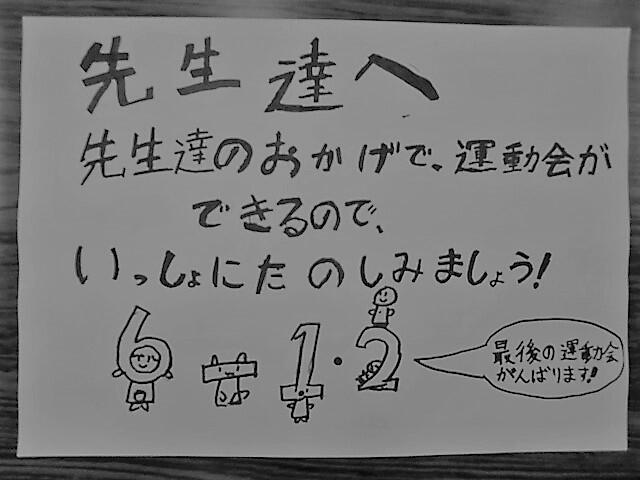 先生達へ
先生達のおかげで、運動会が
できるので、
いっしょにたのしみましょう!
6の1・2
最後の運動会
がんばります!